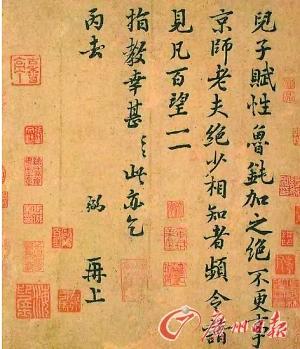 兒子賦性魯鈍加之絕不更事
京師老夫絕少相知者頻令請
見凡百望一一
指教幸甚〻此亦乞
丙去 弼 再上
廣州日報